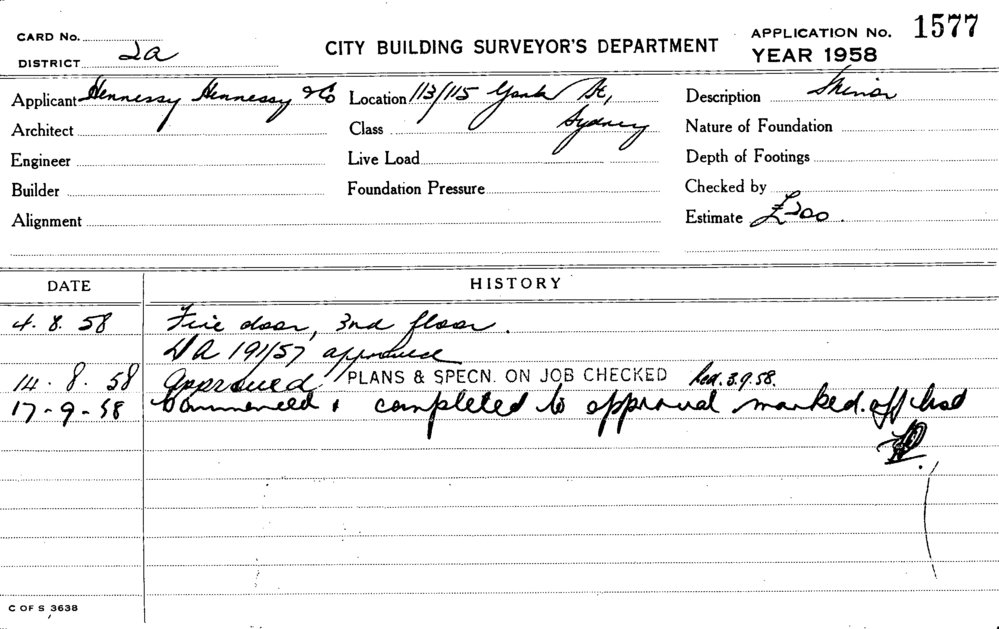 CARD No.
DISTRICT 2a
CITY BUILDING SURVEYOR'S DEPARTMENT
APPLICATION No. 1577
YEAR 1958
Applicant Hennessy Hennessy & Co
Location 113/115 York St,
Sydney
Description Minor
Architect
Class
Nature of Foundation
Engineer
Live Load
Depth of Footings
Builder
Foundation Pressure
Checked by
Alignment
Estimate £200.
DATE
HISTORY
4. 8. 58 Fire door, 3nd floor.
DA 191/57 approved
14. 8. 58 Approved PLANS & SPECN. ON JOB CHECKED 3.9.58.
17-9-58 Commenced & completed to approval marked off
C OF S 3638